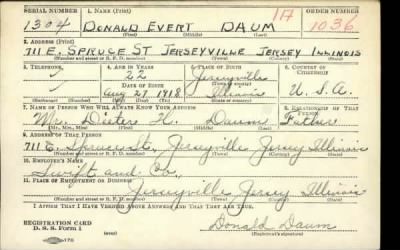 SERIAL NUMBER 1. NAME (Print) ORDER NUMBER
1304 DONALD EVERT DAUM 1A 1036
(First) (Middle) (Last)
2. ADDRESS (Print)
711 E. SPRUCE ST JERSEYVILLE JERSEY ILLINOIS
(Number and street or R. F. D. number) (Town) (County) (State)
3. TELEPHONE 4. AGE IN YEARS 5. PLACE OF BIRTH 6. COUNTRY OF CITIZENSHIP
22 Jerseyville
DATE OF BIRTH
Aug 27 1918 Illinois U. S. A.
(Exchange) (Number) (Mo.) (Day) (Yr.) (State or country)
7. NAME OF PERSON WHO WILL ALWAYS KNOW YOUR ADDRESS 8. RELATIONSHIP OF THAT PERSON
Mr. H. Daum Father
(Mr., Mrs., Miss) (First) (Middle) (Last)
9. ADDRESS OF THAT PERSON
711 E. Spruce St., Jerseyville Jersey Illinois
(Number and street or R. F. D. number) (Town) (County) (State)
10. EMPLOYER'S NAME
Swift and Co.
11. PLACE OF EMPLOYMENT OR BUSINESS
Jerseyville Jersey Illinois
(Number and street or R. F. D. number) (Town) (County) (State)
I AFFIRM THAT I HAVE VERIFIED ABOVE ANSWERS AND THAT THEY ARE TRUE.
REGISTRATION CARD
D. S. S. Form 1 Donald Daum
(Registrant's signature)